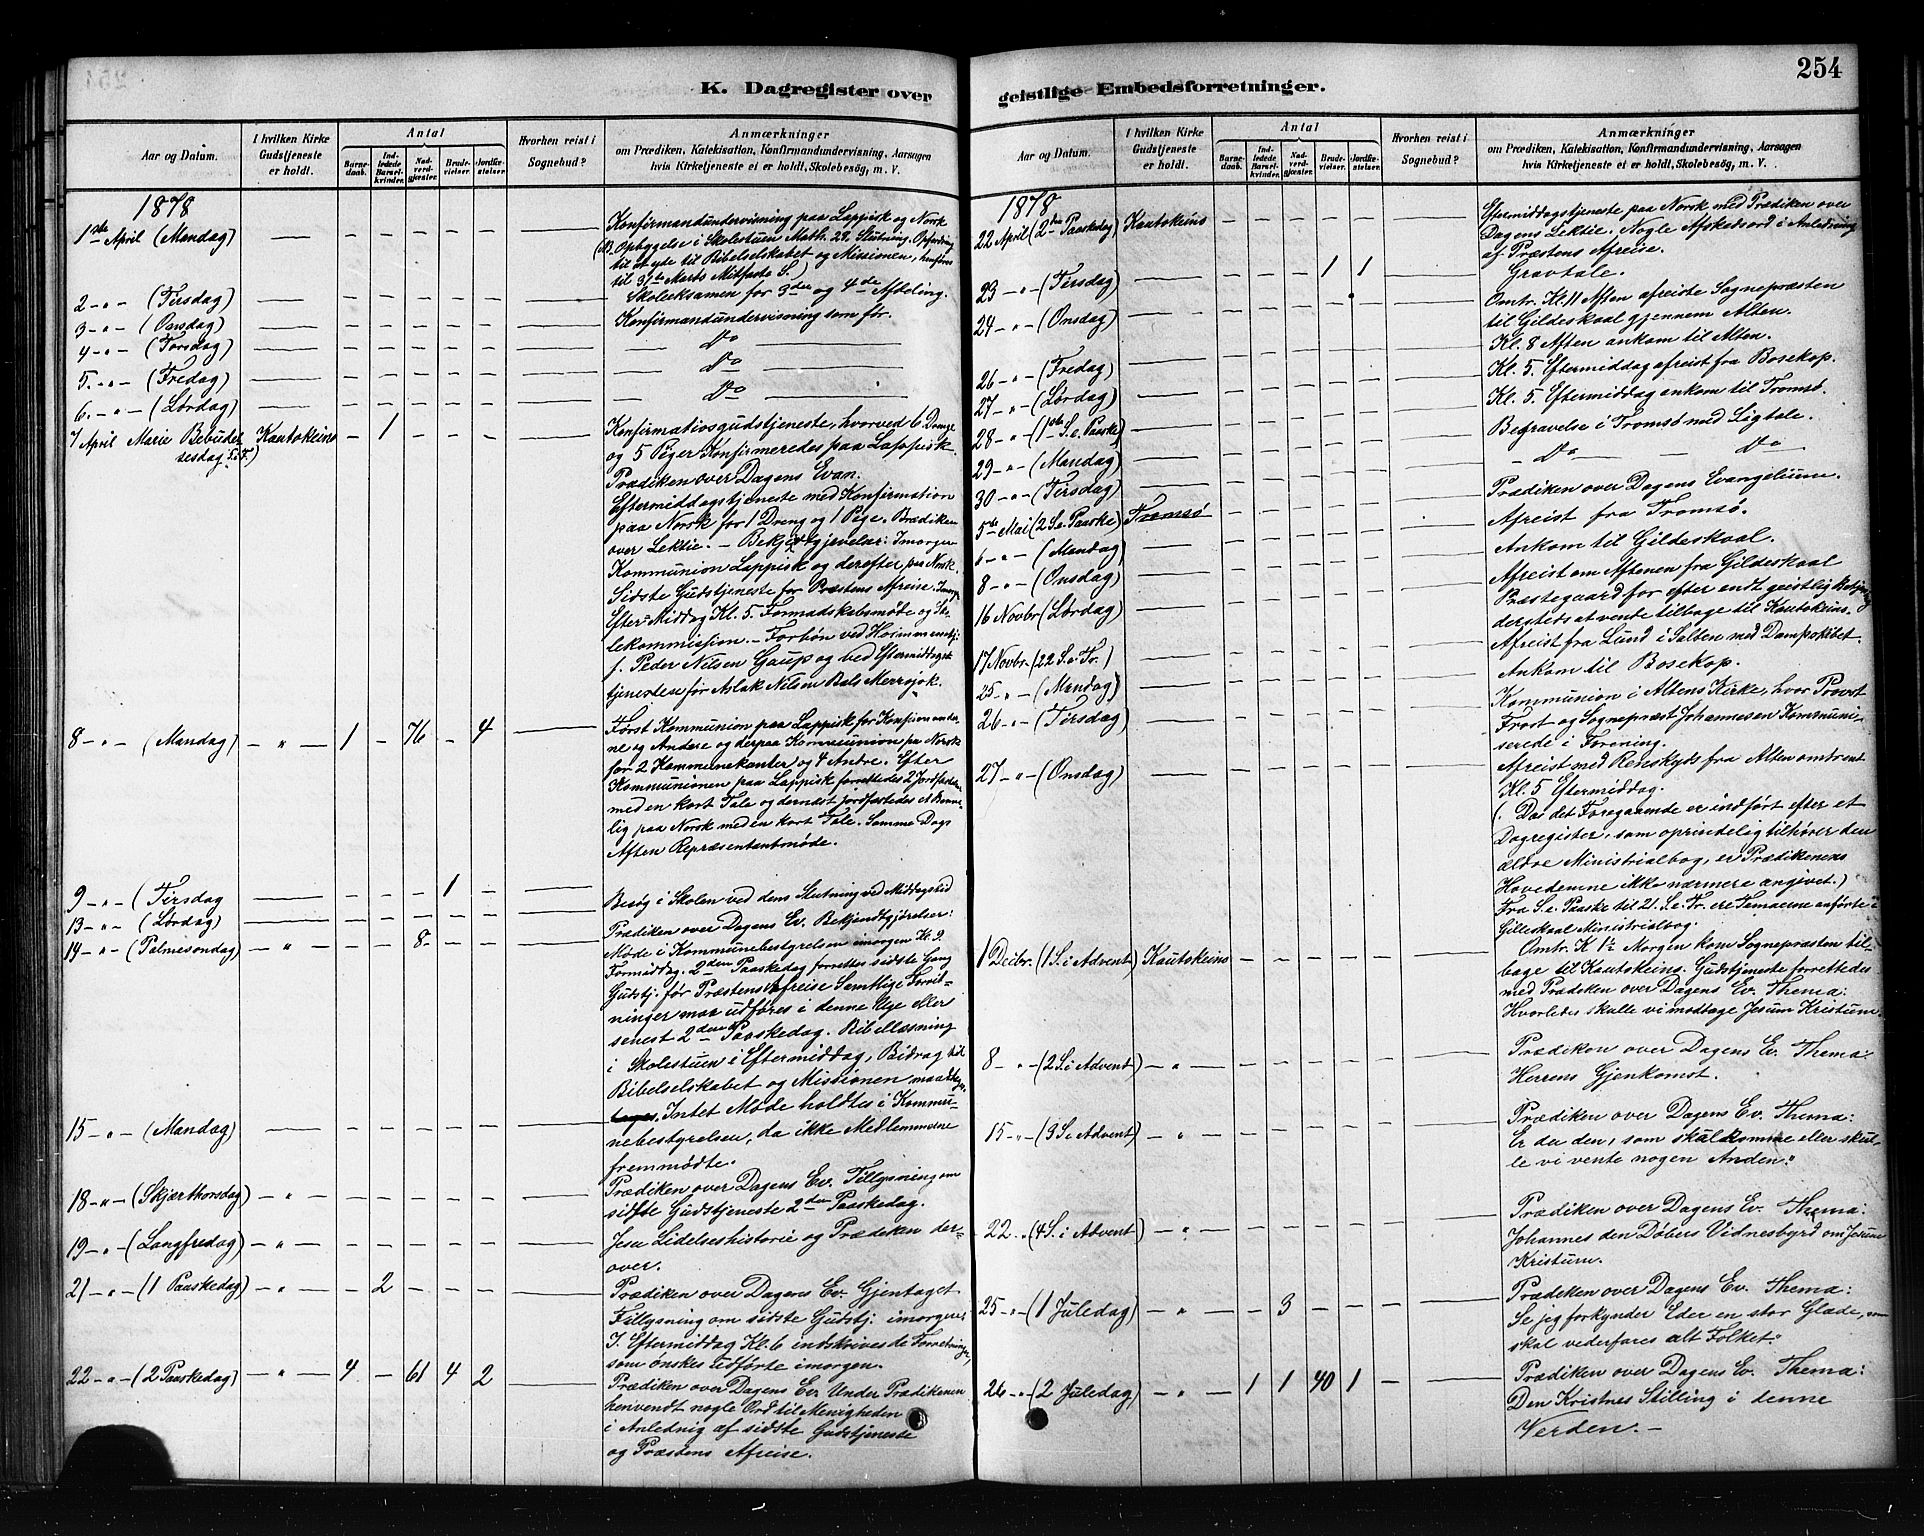 254
K. Dagregister over
Aar og Datum.
I hvilken Kirke
Gudstjeneste
er holdt.
Antal
Barne-
daab.
Ind-
ledede
Barsel-
kvinder.
Nad-
verd-
gjæster.
Brude-
vielser.
Jordfæ-
stelser.
Hvorhen reist i
Sognebud?
Anmærkninger
om Prædiken, Katekisation, Konfirmandundervisning, Aarsagen
hvis Kirketjeneste ei er holdt, Skolebesøg, m. V.
1878
1ste April (Mandag) — — — — — — — Konfirmandundervisning paa Lappisk og Norsk
Opbyggelse i Skolestuen Math. 28. Slutning. Opfordring
til at yde til Bibelselskabet og Missionen, henføres
til 31te Marts Midfaste S.)
2 - " - (Tirsdag) — — — — — — — Skoleeksamen for 3die og 4de Afdeling.
3 - " - (Onsdag) — — — — — — — Konfirmandundervisning som før.
4 - " - (Torsdag) — — — — — — — Do
5. - " - (Fredag) — — — — — — — Do
6. - " - (Lørdag) — — — — — — — Do
7 April Marie Bebudel- Kautokeino — 1 — — — — Konfirmationsgudstjeneste, hvorved 6 Drenge
sesdag og 5 Piger Konfirmeredes paa Lappisk.
Prædiken over Dagens Evan.
Eftermiddagstjeneste med Konfirmation
paa Norsk for 1 Dreng og 1 Pige. Prædiken
over Lektie. — Bekjendtgjørelser: Imorgen
Kommunion Lappisk og derefter paa Norsk.
Sidste Gudstjeneste før Præstens Afreise. Imorgen
Efter-Middag Kl. 5. Formandskabsmøde og Sko-
lekommission. — Forbøn ved Høimessen
f. Peder Nilsen Gaup og ved Eftermiddags-
tjenesten for Aslak Nilsen Bals Merrajok.
8 - " - (Mandag) — " — 1 — 76 — 4 — Først Kommunion paa Lappisk for Konfirmander-
ne og Andre og derpaa Kommunion paa Norsk
for 2 Kommunekanter og 4 Andre. Efter
Kommunionen paa Lappisk forrettedes 2 Jordfæstelser
med en kort Tale og dernæst jordfæstedes et Barne-
lig paa Norsk med en kort Tale. Samme Dags
Aften Repræsentantmøde.
9 - " - (Tirsdag — — — — 1 — — Besøg i Skolen ved dens Slutning ved Middagstid
13 - " - (Lørdag) — — — — — — —
14 - " - (Palmesondag) — " — — — 8 — — — Prædiken over Dagens Ev. Bekjendtgjørelser:
Møde i Kommunebestyrelsen imorgen Kl. 9.
Formiddag. 2den Paaskedag forrettes sidste Gang
Gudstj. før Præstens Afreise. Samtlige Forret-
ninger maa udføres i denne Uge eller
senest 2den Paaskedag. Bibellæsning
i Skolestuen i Eftermiddag, Bidrag til
Bibelselskabet og Missionen
15 - " - (Mandag) — — — — — — — Intet Møde holdtes i Kommu-
nebestyrelsen, da ikke Medlemmerne
fremmødte.
18 - " - (Skjærthorsdag) — " — — — — — — — Prædiken over Dagens Ev. Tillysning om
sidste Gudstjeneste 2den Paaskedag.
19 - " - (Langfredag) — " — — — — — — — Jesu Lidelseshistorie og Prædiken der-
over.
21 - " - (1 Paaskedag) — " — — 2 — — — — Prædiken over Dagens Ev. Gjentaget
Tillysning om sidste Gudstj: imorgen.
I Eftermiddag Kl. 6 indskrives de Forretninger,
som ønskes udførte imorgen.
22 - " - (2 Paaskedag) — " — 4 — 61 4 2 — Prædiken over Dagens Ev. Under Prædikenen
henvendt nogle Ord til Menigheden
i Anledning af sidste Gudstjeneste
og Præstens Afreise.
geistlige Embedsforretninger.
Aar og Datum.
I hvilken Kirke
Gudstjeneste
er holdt.
Antal
Barne-
daab.
Ind-
ledede
Barsel-
kvinder.
Nad-
verd-
gjæster.
Brude-
vielser.
Jordfæ-
stelser.
Hvorhen reist i
Sognebud?
Anmærkninger
om Prædiken, Katekisation, Konfirmandundervisning, Aarsagen
hvis Kirketjeneste ei er holdt, Skolebesög, m. V.
1878
22 April (2den Paaskedag) Kautokeino — — — — — — Eftermiddagstjeneste paa Norsk med Prædiken over
Dagens Lektie. Nogle Afskedsord i Anledning
af Præstens Afreise.
23 - " - (Tirsdag) — — — — 1 1 — Gravtale.
24 - " - (Onsdag) — — — — — — — Omtr. Kl. 11 Aften afreiste Sognepræsten
til Gildeskaal gjennem Alten.
26 - " - (Fredag) — — — — — — — Kl. 8 Aften ankom til Alten.
27 - " - (Lørdag) — — — — — — — Kl. 5. Eftermiddag afreist fra Bosekop.
28 - " - (1ste S. e. Paaske) — — — — — — — Kl. 5. Eftermiddag ankom til Tromsø.
29 - " - (Mandag) — — — — — — — Begravelse i Tromsø med Ligtale.
30 - " - (Tirsdag) — — — — — — — Do — Do
5te Mai (2 S. e. Paaske) Tromsø — — — — — — Prædiken over Dagens Evangelium.
6 - " - (Mandag) — — — — — — — Afreist fra Tromsø.
8 - " - (Onsdag) — — — — — — — Ankom til Gildeskaal.
16 Novbr (Lørdag) — — — — — — — Afreist om Aftenen fra Gildeskaal
Præstegaard for efter endt geistlig Betjening
dersteds at vende tilbage til Kautokeino.
17 Novbr. (22 S. e Tr.) — — — — — — — Afreist fra Lund i Salten med Dampskibet.
25 - " - (Mandag) — — — — — — — Ankom til Bosekop.
26 - " - (Tirsdag) — — — — — — — Kommunion i Altens Kirke, hvor Provst
Frost og Sognepræst Johannesen Kommuni-
serede i Forening.
27 - " - (Onsdag) — — — — — — — Afreist med Renskyds fra Alten omtrent
Kl. 5 Eftermiddag.
(. Da det Foregaaende er indført efter et
Dagregister, som oprindelig tilhører den
ældre Ministrialbog, er Prædikenens
Hovedemne ikke nærmere angivet.)
Fra S. e. Paaske til 21. S. e. Tr. ere Temaerne anførte i
Gilleskaal Ministrialbog.
1 Decbr. (1 S. i Advent) Kautokeino — — — — — — Omtr. K 1½ Morgen kom Sognepræsten til-
bage til Kautokeino. Gudstjeneste forrettedes
med Prædiken over Dagens Ev. Thema:
Hvorledes skulle vi modtage Jesum Kristum.
8 - " - (2 S. i Advent) — " — — — — — — — Prædiken over Dagens Ev. Thema:
Herrens Gjenkomst.
15 - " - (3 S. i Advent) — " — — — — — — — Prædiken over Dagens Ev. Thema:
Er du den, som skal komme eller skul-
le vi vente nogen Anden."
22 - " (4 S. i Advent) " — — — — — — — Prædiken over Dagens Ev. Thema:
Johannes den Døbers Vidnesbyrd om Jesum
Kristum.
25 - " - (1 Juledag) — " — — — 3 — — — Prædiken over Dagens Ev. Thema:
Se jeg forkynder Eder en stor Glæde, som
skal vederfares alt Folket."
26 - " - (2 Juledag) — " — 1 1 40 1 — — Prædiken over Dagens Ev. Thema:
Den Kristnes Stilling i denne
Verden. —